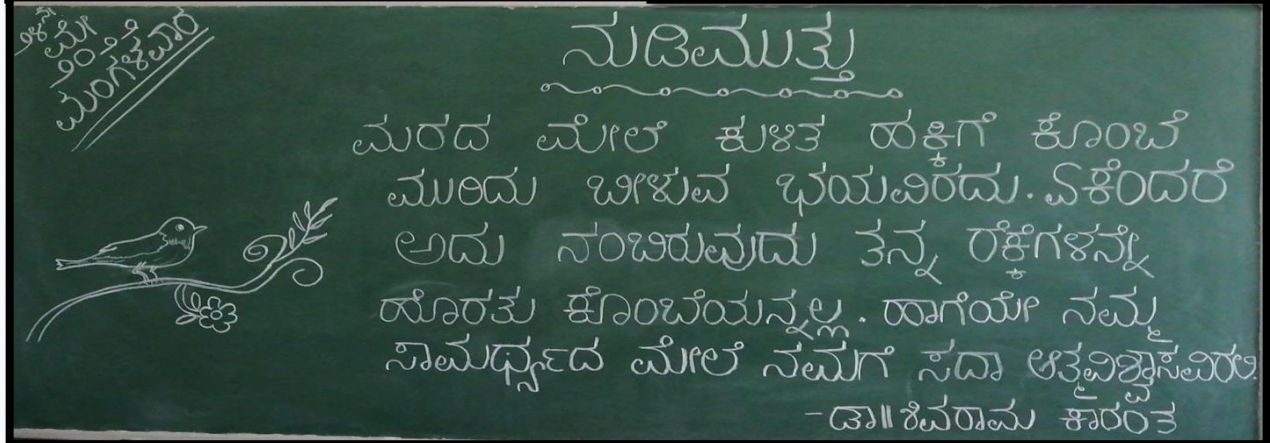 ೨೪ನೇ
ಮೇ
೨೦೨೨
ಮಂಗಳವಾರ
ನುಡಿಮುತ್ತು
ಮರದ ಮೇಲೆ ಕುಳಿತ ಹಕ್ಕಿಗೆ ಕೊಂಬೆ
ಮುರಿದು ಬೀಳುವ ಭಯವಿರದು. ಏಕೆಂದರೆ
ಅದು ನಂಬಿರುವುದು ತನ್ನ ರೆಕ್ಕೆಗಳನ್ನೇ
ಹೊರತು ಕೊಂಬೆಯನ್ನಲ್ಲ. ಹಾಗೆಯೇ ನಮ್ಮ
ಸಾಮರ್ಥ್ಯದ ಮೇಲೆ ನಮಗೆ ಸದಾ ಆತ್ಮವಿಶ್ವಾಸವಿರಲಿ.
-ಡಾ॥ ಶಿವರಾಮ ಕಾರಂತ